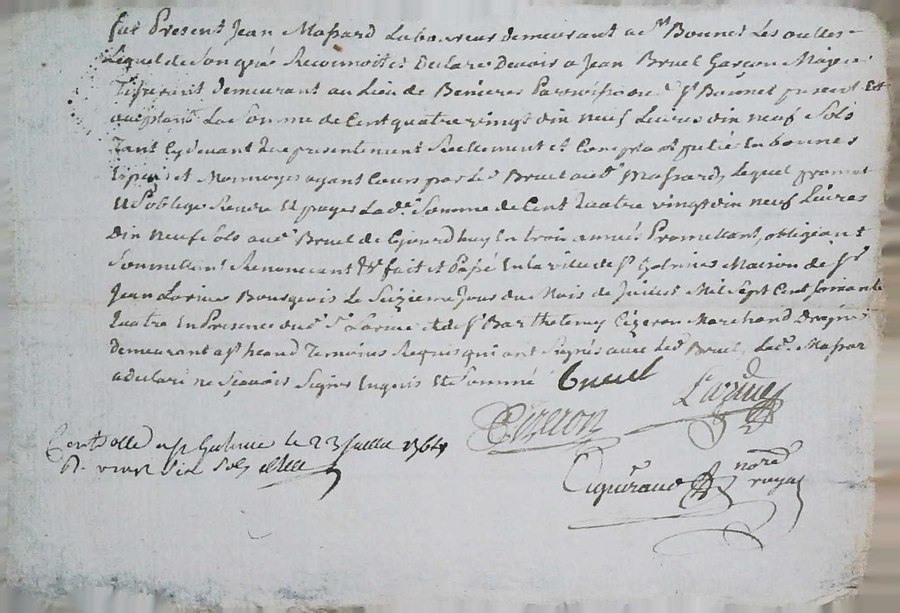 fut Present Jean Massard Laboureur demeurant a St Bonnet Les oulles
Lequel de Son gré a Reconnoît et Declare Devoir a Jean Bruel Garçon Majeur
Tisserant Demeurant au Lieu de Parroisse St Bonnet present Et
acceptant La Somme de Cent quatre vingt dix neuf Livres dix neuf Sols
Tant Cydevant que presentement Reellement et Compta en bonnes
Espèces et Monnoyes ayant Cours par Led Bruel aud Massard, Lequel promet
Et Soblige Rendre Et payer Lad. Somme de Cent quatre vingt dix neuf Livres
Dix neuf Sols aud Bruel de Cejourdhuy En trois années Promettant, obligeant
Soumettant Renonceant &c fait et Passé En la ville de St Galmier Maison de Sr
Jean Larive Bourgeois Le Seizieme Jour du Mois de Juillet Mil Sept Cent Soixante
quatre En Presence dud. Sr Larive et de Sr Barthelemy Cizeron Marchand
demeurant a St heand Temoins Requis qui ont Signés avec led Bruel, Led. Massar
a declaré ne Sçavoir Signer Enquis Et Sommé
bruel
Larive
Cizeron
nore
royal
Controllé a St Galmier le 23 Juillet 1764
R. vingt Six Sols